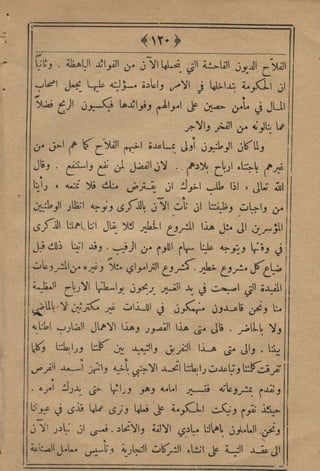 ﴿ ١٢٠ ﴾
الفلاح الديون الفاحشة التي يتحملها الآن من الفوائد الباهظة . وثانياً
ان الحكومة بتداخلها في الامر واعادة مسؤليته عليها يجعل اصحاب
المال في مأمن حصين على اموالهم وفوائدها فيكسبون الربح فضلاً
عما ينالونه من الفخر والاجر
ولما كان الوطنيون أولى بمساعدة اخيهم الفلاح كما هم احق من
غيرهم باجتناء ارباح بلادهم . لان الفضل لمن نفع واستنفع . وقال
الله تعالى « اذا طلب اخوك ان يقترض منك فلا تمنعه » رأينا
من واجبات وظيفتنا ان نأت الآن بالذكرى ونوجه انظار الوطنيين
المؤسرين الى مثل هذا المشروع الخطير لئلا يقال اننا اهملنا الذكرى
في وقتها ويتوجه علينا سهام اللوم من الرقيب . وقد اتينا ذلك قبل
ضياع كل مشروع خطير . كمشروع الترامواي مثلاً وغيره من المشروعات
المفيدة التي اصبحت في يد الغير يربحون بواسطتها الارباح العظيمة
منا ونحن قاعدون منهمكون في اللذات غير مكترثين لا بالماضي
ولا بالحاضر . فالى متى هذا القصور وهذا الاهمال الضارب اطنابه
بيننا . والى متى هذا التفريق والتبعيد بين كلمتنا ورابطتنا وكلما
تفرقت كلمتنا وتباعدت رابطتنا اتحد الاجنبي بأخيه وانتهز أسعد الفرص
وتقدم بمشروعاته فتسير امامه وهو ورائها حتى يدرك أمره .
حينئذ نقوم ونبكت الحكومة على فعلها ونرى عملها قذى في عيوننا
ونحن العاملون باهمالنا مبادي الالفة والاتحاد . فعسى ان نبادر الآن
الى عقد النية على انشاء الشركات التجارية وتأسيس معامل الصناعة